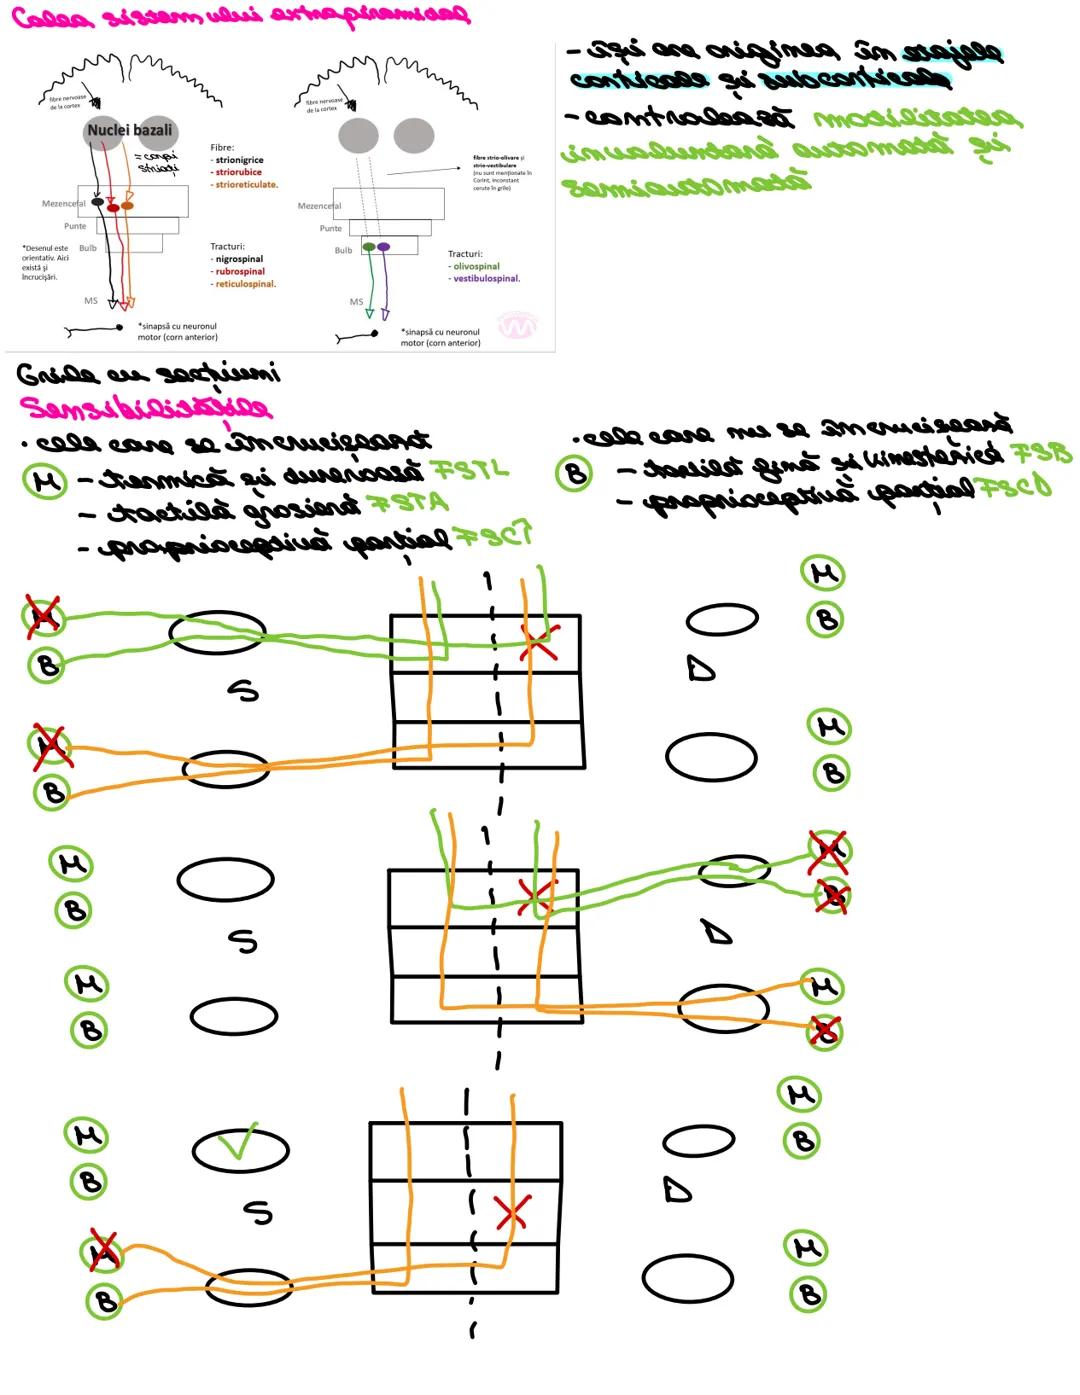 Calea sistemului extrapiramidal
- își are originea în etajele
corticale și subcorticale
- controlează motilitatea
involuntară automată și
semiautomată
fibre nervoase
de la cortex
Nuclei bazali
= corpi
striați
Fibre:
- strionigrice
- striorubice
- strioreticulate.
Mezencefal
Punte
Bulb
*Desenul este
orientativ. Aici
există și
încrucișări.
Tracturi:
- nigrospinal
- rubrospinal
- reticulospinal.
MS
*sinapsă cu neuronul
motor (corn anterior)
fibre nervoase
de la cortex
fibre strio-olivare și
strio-vestibulare
(nu sunt menționate în
Corint, inconstant
cerute în grile)
Mezencefal
Punte
Bulb
Tracturi:
- olivospinal
- vestibulospinal.
MS
*sinapsă cu neuronul
motor (corn anterior)
Grile cu secțiuni
Sensibilitățile
· cele care se încrucișează
M - termică și dureroasă FSTL
- tactilă grosieră FSTA
- proprioceptivă parțial FSC↑
· cele care nu se încrucișează
B - tactilă fină și kinestezică FSB
- proprioceptivă parțial FSCD
M
B
S
M
B
M
B
D
M
B
M
B
S
M
B
M
B
D
M
B
M
B
S
M
B
M
B
D
M
B